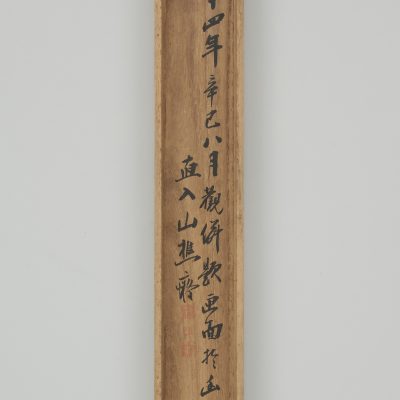 十四年辛巳八月觀併題画面於
直入山樵癡